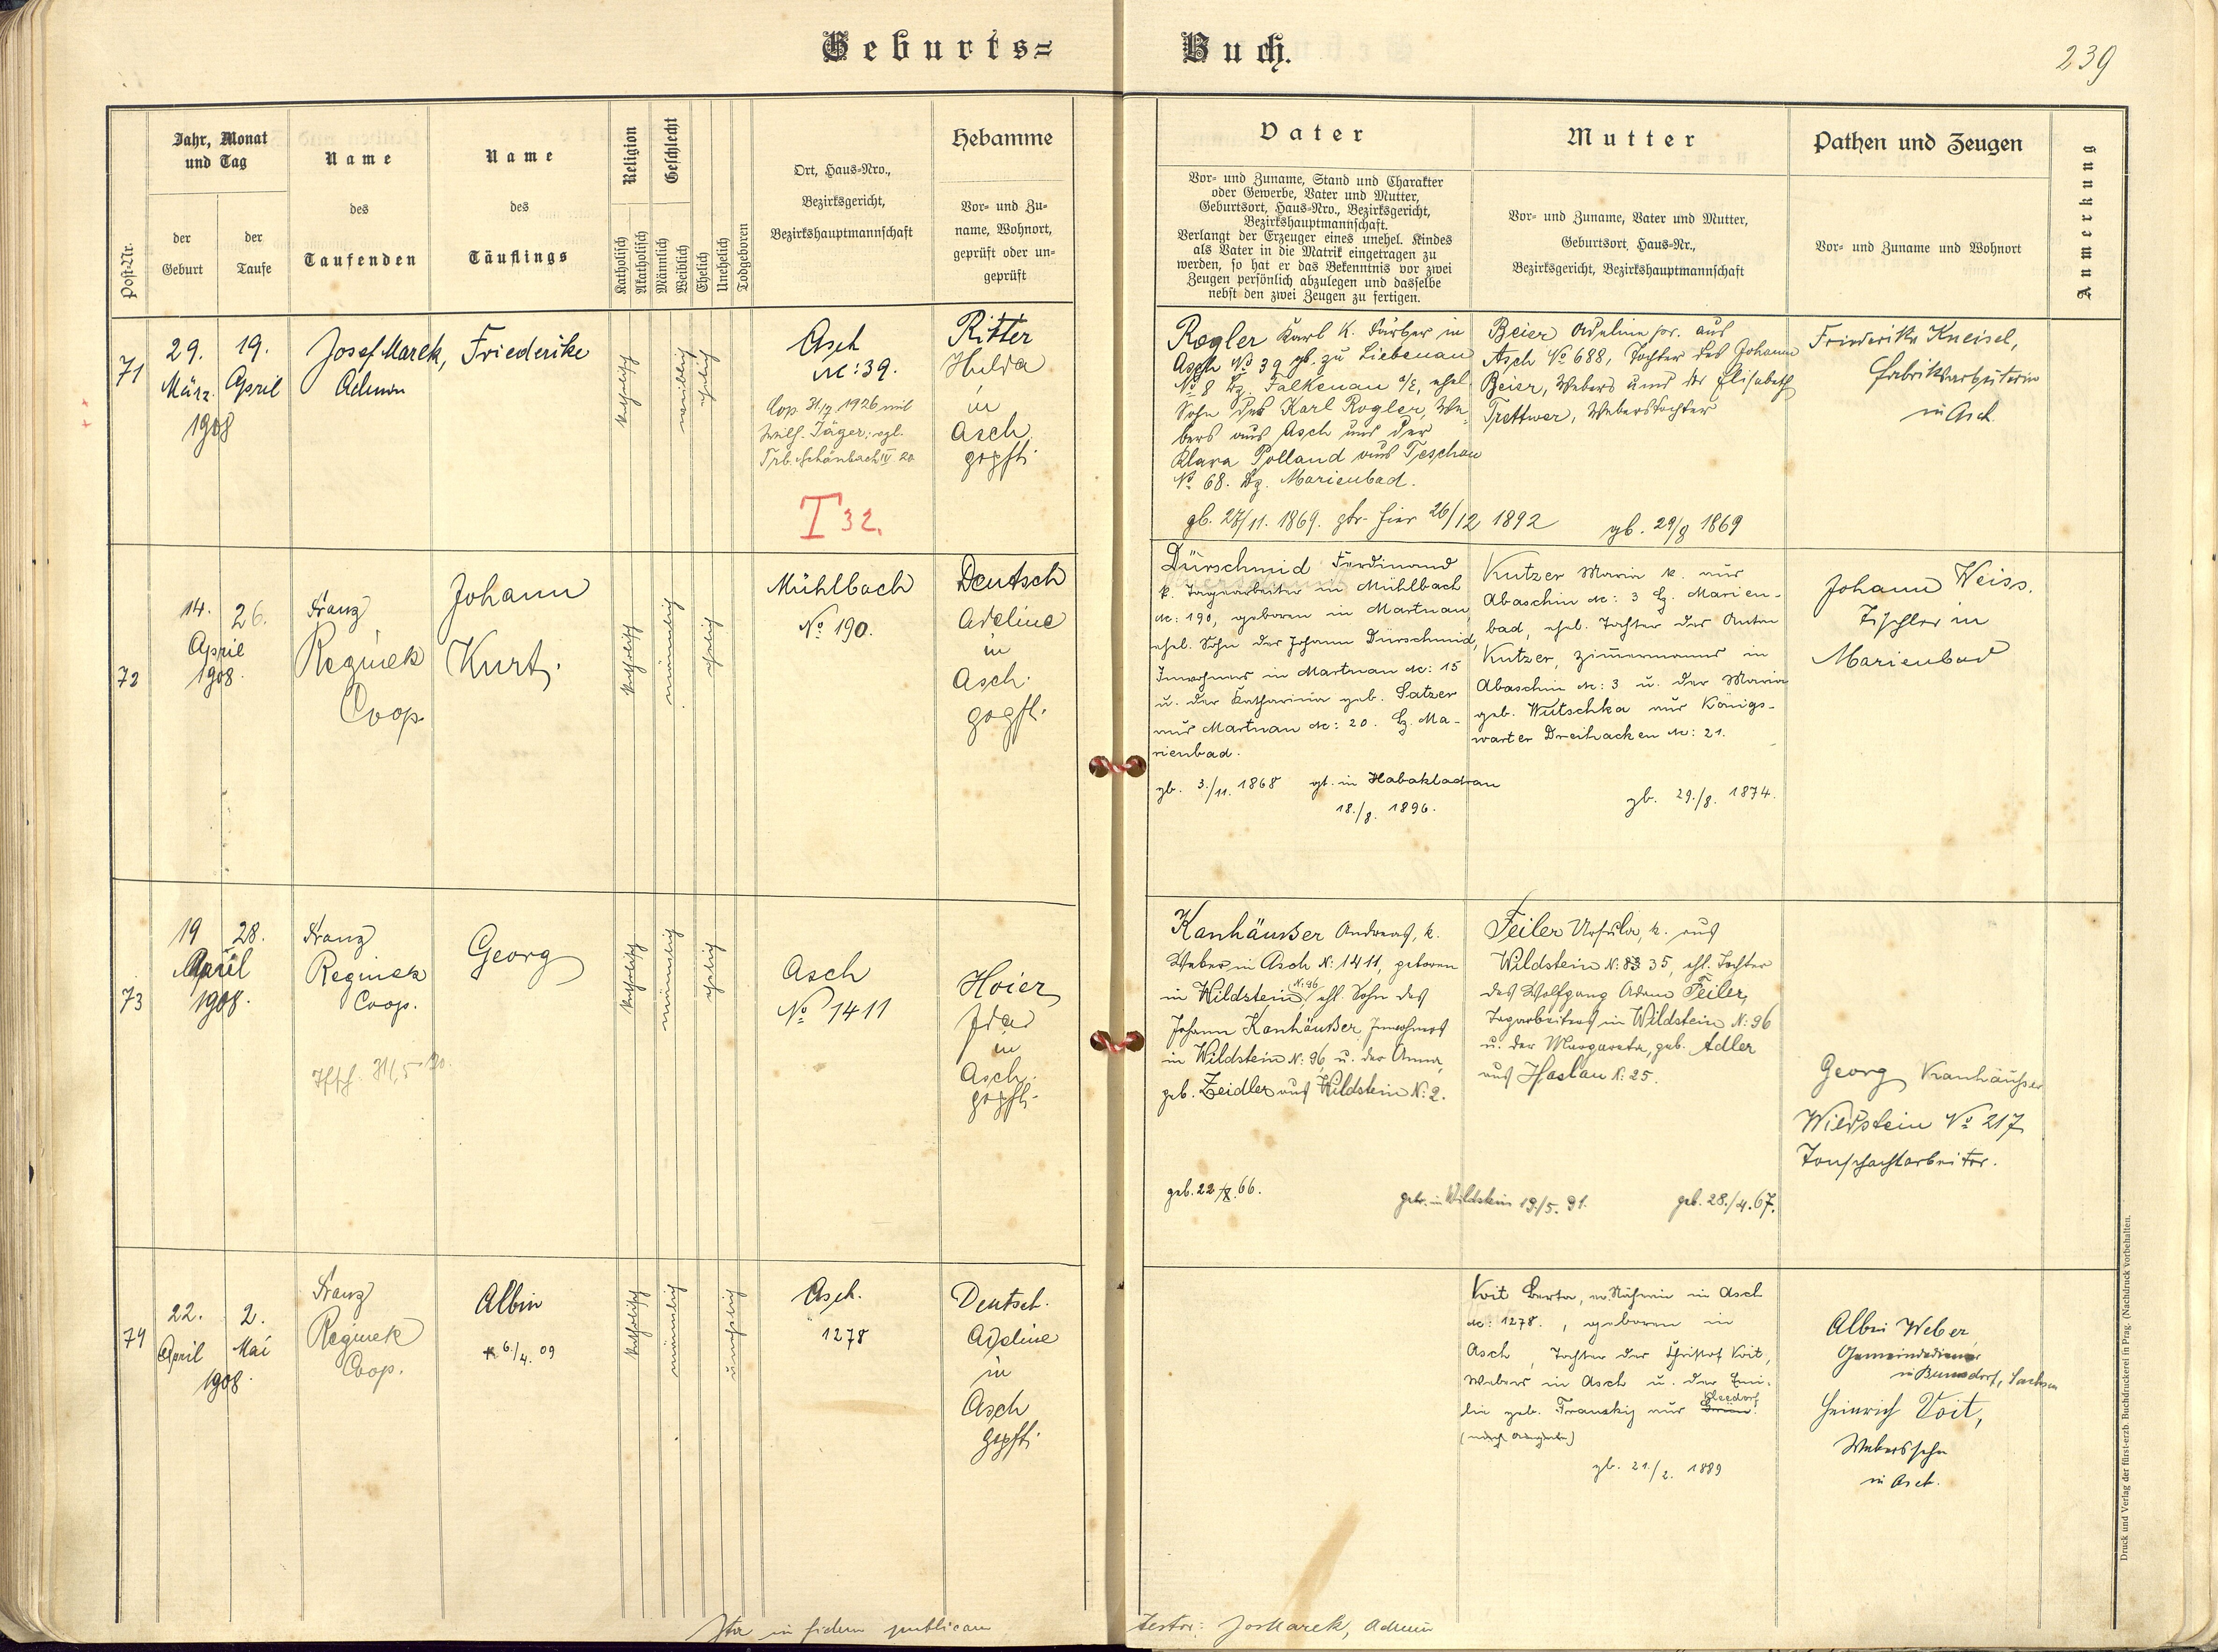 Geburts=
Buch.
239
Post-Nr.
Jahr, Monat
und Tag
der
Geburt
der
Taufe
Name
des
Taufenden
Name
des
Täuflings
Religion
Katholisch
Akatholisch
Geschlecht
Männlich
Weiblich
Ehelich
Unehelich
Todgeboren
Ort, Haus-Nro.,
Bezirksgericht,
Bezirkshauptmannschaft
Hebamme
Vor- und Zu-
name, Wohnort,
geprüft oder un-
geprüft
Vater
Vor- und Zuname, Stand und Charakter
oder Gewerbe, Vater und Mutter,
Geburtsort, Haus-Nro., Bezirksgericht,
Bezirkshauptmannschaft.
Verlangt der Erzeuger eines unehel. Kindes
als Vater in die Matrik eingetragen zu
werden, so hat er das Bekenntnis vor zwei
Zeugen persönlich abzulegen und dasselbe
nebst den zwei Zeugen zu fertigen.
Mutter
Vor- und Zuname, Vater und Mutter,
Geburtsort, Haus-Nr.,
Bezirksgericht, Bezirkshauptmannschaft
Pathen und Zeugen
Vor- und Zuname und Wohnort
Anmerkung
71
29.
März
19.
April
1908
Josef Marek,
Admin
Friederike
katholisch
weiblich
ehelich
Asch
Nc: 39.
Cop. 31/7 1926 mit
Wilh. Jäger; egl.
Trb. Schönbach IV 20
T 32.
Ritter
Hulda
in
Asch
gepft.
Rogler Karl k. Färber in
Asch No 39 gb. zu Liebenau
No 8 Bz. Falkenau a/E, ehel.
Sohn des Karl Rogler, We-
bers aus Asch und der
Klara Polland aus Teschau
No 68. Bz. Marienbad.
gb. 27/11. 1869. gtr. hier 26/12 1892
Beier Adeline pr. aus
Asch No 688, Tochter des Johann
Beier, Webers und der Elisabeth
Trettwer, Weberstochter
gb. 29/8 1869
Friederike Kneisel,
Fabriksarbeiterin
in Asch
72
14.
April
26.
1908.
Franz
Reginek
Coop.
Johann
Kurt.
katholisch
männlich
ehelich
Mühlbach
No 190.
Deutsch
Adeline
in
Asch.
gepft.
Dürschmid Ferdinand
k. Tagearbeiter in Mühlbach
Nc: 190, geboren in Martnau
ehel. Sohn des Johann Dürschmid,
Inwohners in Martnau Nc: 15
u. der Katharina geb. Satzer
aus Martnau Nc: 20. Bz. Ma-
rienbad.
gb. 3./11. 1868 gt. in Habakladrau
18./8. 1896.
Kutzer Maria k. aus
Abaschin Nc: 3 Bz. Marien-
bad, ehel. Tochter des Anton
Kutzer, Zimmermanns in
Abaschin Nc: 3 u. der Maria
geb. Wutschka aus Königs-
warter Dreihacken Nc: 21.
gb. 29./8. 1874.
Johann Weiss.
Tischler in
Marienbad
73
19
April
28.
1908.
Franz
Reginek
Coop.
31/5 30.
Georg
katholisch
männlich
ehelich
Asch
No 1411
Hoier
Ida
in
Asch.
gepft.
Kanhäußer Andreas, k.
Weber in Asch N: 1411, geboren
in Wildstein N: 96, ehl. Sohn des
Johann Kanhäußer Inwohners
in Wildstein N: 96 u. der Anna,
geb. Zeidler aus Wildstein N: 2.
geb. 22/8.66.
getr. in Wildstein 19./5. 91.
Feiler Ursula, k. aus
Wildstein N: 35, ehl. Tochter
des Wolfgang Adam Feiler,
Tagarbeiters in Wildstein N: 96
u. der Margareta, geb. Adler
aus Haslau N: 25.
geb. 28./4.67.
Georg Kanhäußer
Wildstein No 217
Tonschachtarbeiter.
74
22.
April
2.
Mai
1908.
Franz
Reginek
Coop.
Albin
6/4. 09
katholisch
männlich
unehelich
Asch.
1278
Deutsch.
Adeline
in
Asch
gepft.
Voit Berta, ev. Näherin in Asch
Nc: 1278., geboren in
Asch, Tochter des Christof Voit,
Webers in Asch u. der Emi-
lie geb. Franzky aus
(nach Angabe)
gb. 21./2. 1889
Albin Weber,
Gemeindediener
in Brunndorf, Sachsen
Heinrich Voit,
Weberssohn
in Asch.
Ita in fidem publicam
testor: Jos Marek, Admin
Druck und Verlag der fürst-erzb. Buchdruckerei in Prag. (Nachdruck vorbehalten.